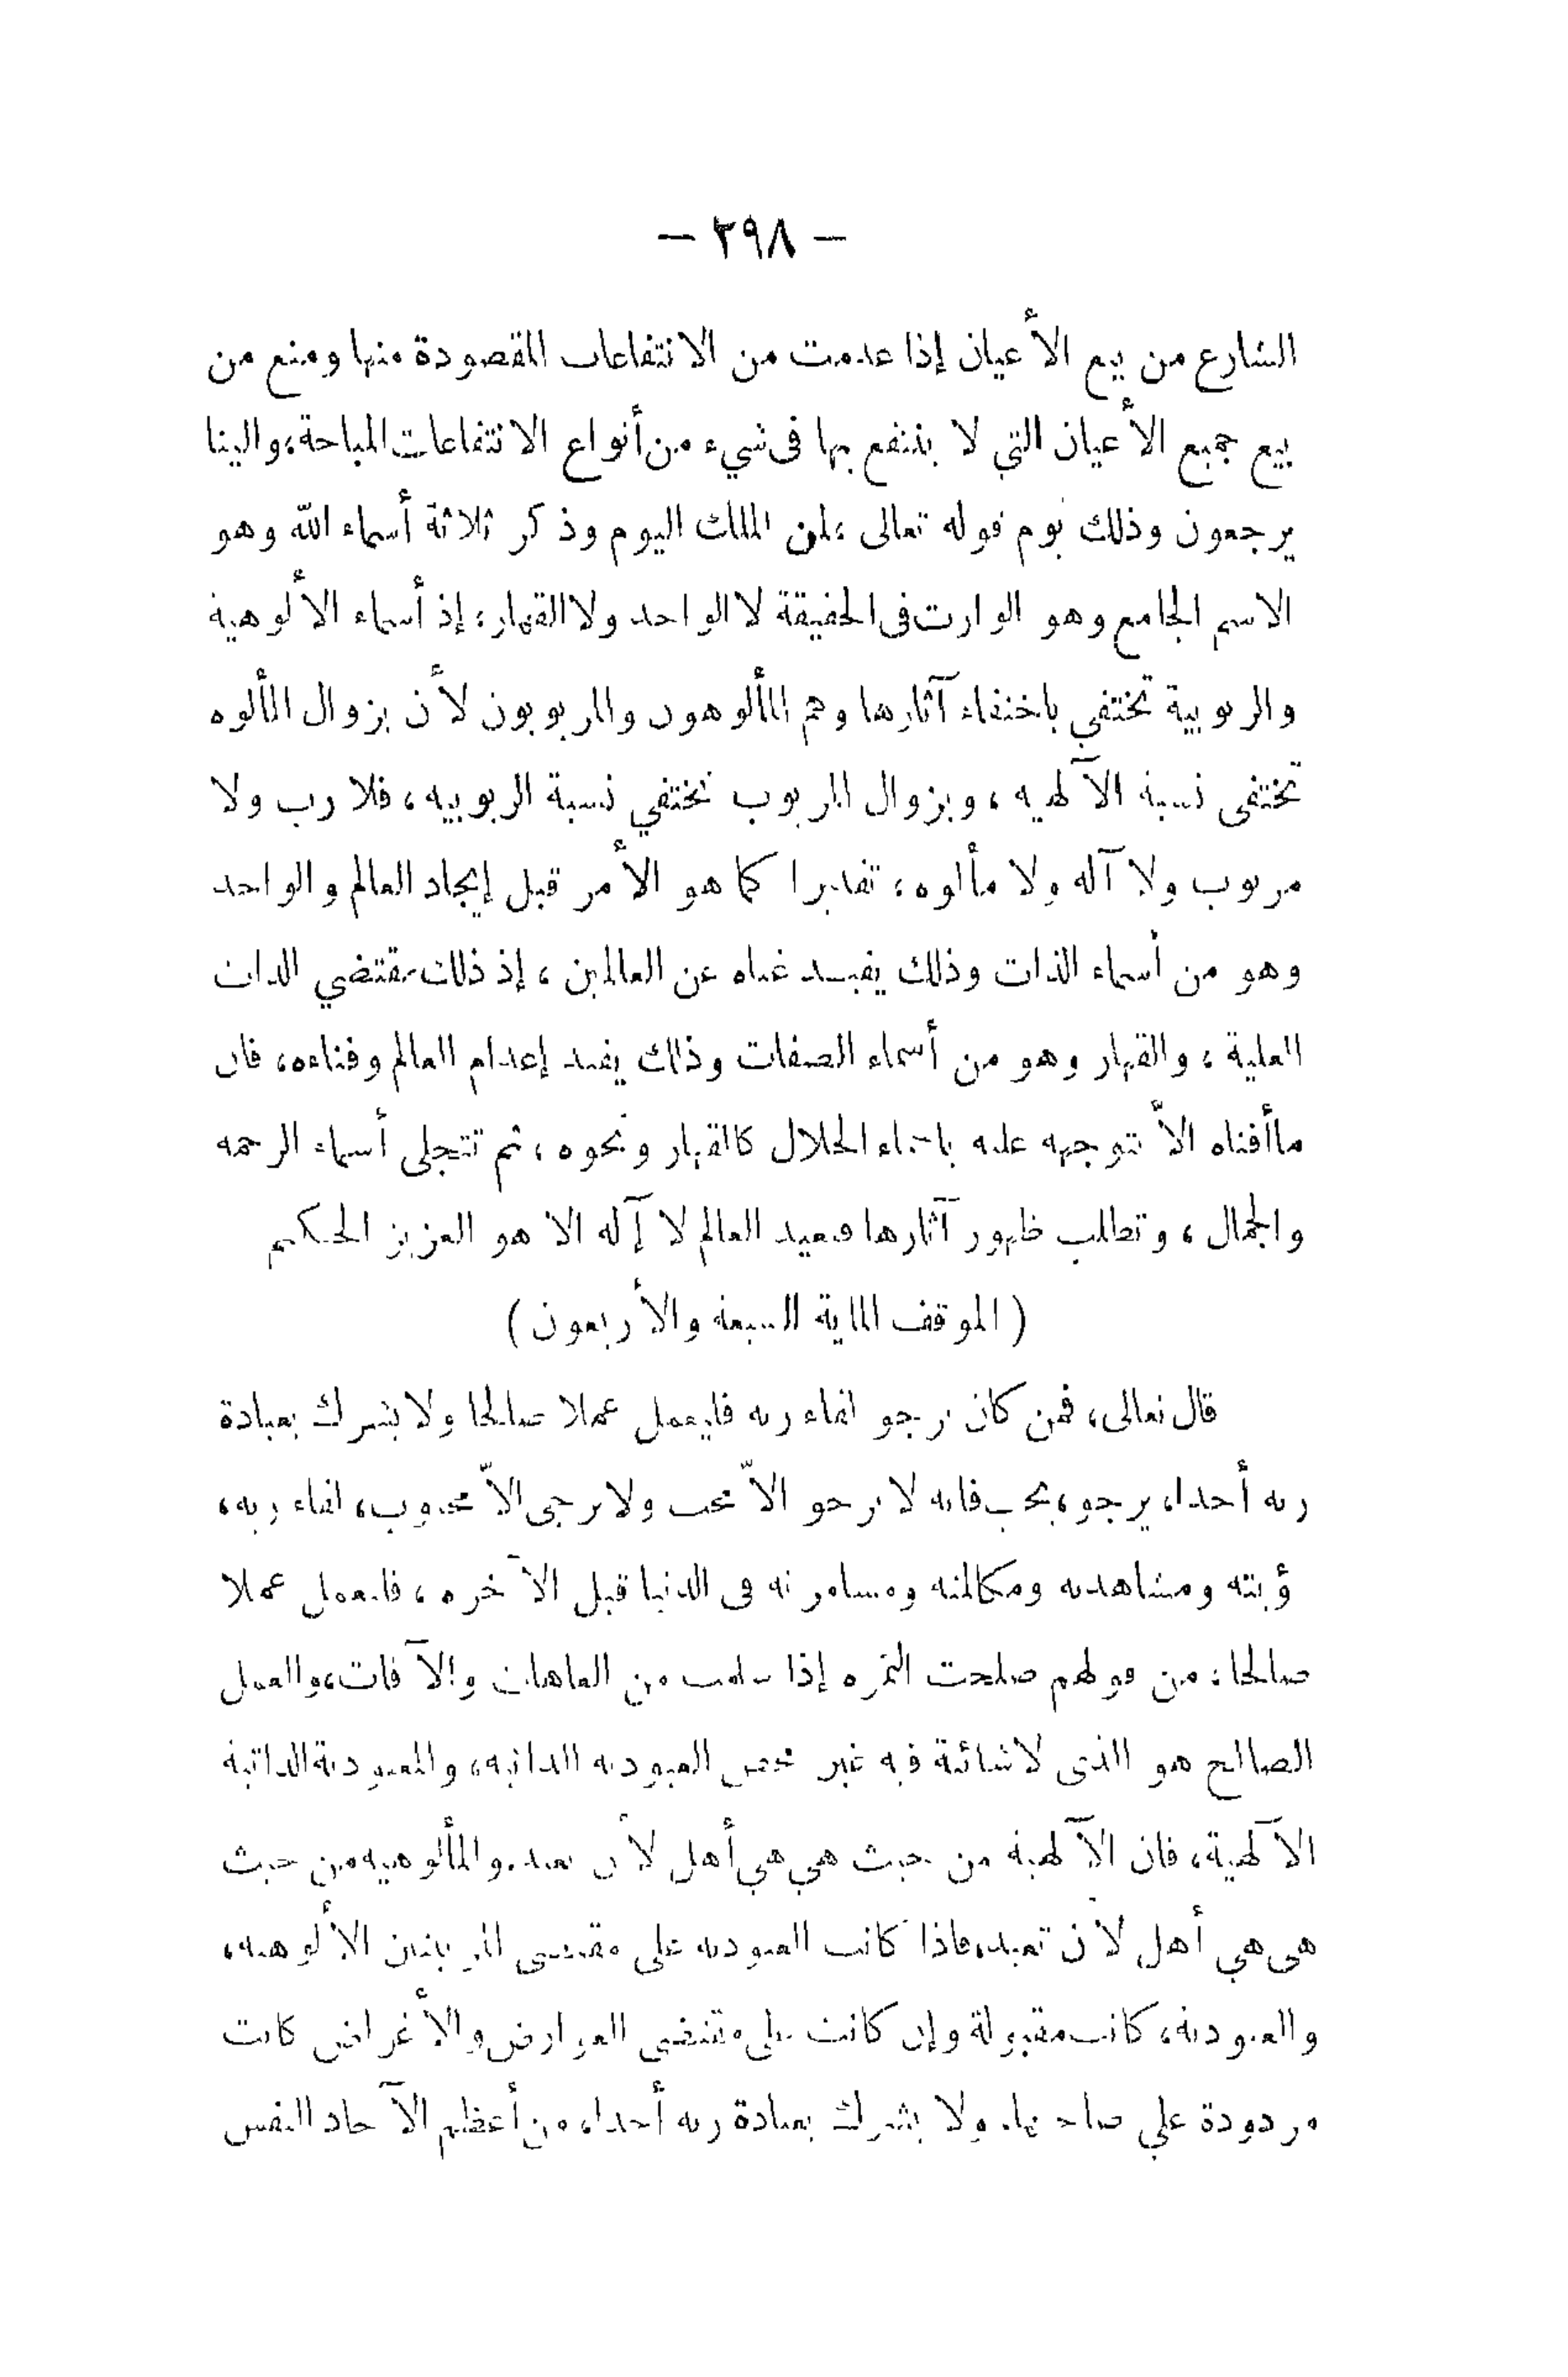 — ٢٩٨ —
الشارع من بيع الأعيان إذا عدمت من الانتفاعات المقصودة منها ومنع من
بيع جميع الأعيان التي لا ينتفع بها فى شيء من أنواع الانتفاعات المباحة، والينا
يرجعون وذلك يوم قوله تعالى، لمن الملك اليوم وذكر ثلاثة أسماء الله وهو
الاسم الجامع وهو الوارث فى الحقيقة لا الواحد ولا القهار، إذ أسماء الألوهية
والربوبية تختفي باختفاء آثارها وهم المألوهون والمربوبون لأن بزوال المألوه
تختفى نسبة الآلهية، وبزوال المربوب تختفي نسبة الربوبيه، فلا رب ولا
مربوب ولا آله ولا مألوه، تقديرا كما هو الأمر قبل إيجاد العالم والواحد
وهو من أسماء الذات وذلك يفيد غناه عن العالمين، إذ ذلك مقتضي الذات
العلية، والقهار وهو من أسماء الصفات وذلك يفيد إعدام العالم وفناءه، فان
ماأفناه الاّ توجهه عليه باسماء الجلال كالقهار ونحوه، ثم تتجلى أسماء الرحمه
والجمال، وتطلب ظهور آثارها فيعيد العالم لا إآله الا هو العزيز الحكيم
(الموقف الماية السبعة والأربعون)
قال تعالى، فمن كان يرجو لقاء ربه فليعمل عملا صالحا ولا يشرك بعبادة
ربه أحدا، يرجو، يحب فانه لا يرجو الاّ محب ولا يرجى الاّ محبوب، لقاء ربه،
ؤيته ومشاهدته ومكالمته ومسامرته فى الدنيا قبل الآخره، فليعمل عملا
صالحا: من قولهم صلحت الثمره إذا سلمت من العاهات والآفات، والعمل
الصالح هو الذى لا شائبة فيه غير محض العبوديه الذاتيه، والعبودية الذاتية
الآلهية، فان الآلهية من حيث هي هي أهل لأن تعبد. والمألوهيه من حيث
هى هي أهل لأن تعبد، فاذا كانت العبوديه على مقتضى الألوهيه،
والعبودية، كانت مقبولة وإن كانت على مقتضى العوارض والأغراض كانت
مردودة علي صاحبها. ولا يشرك بعبادة ربه أحدا، من أعظم الآحاد النفس